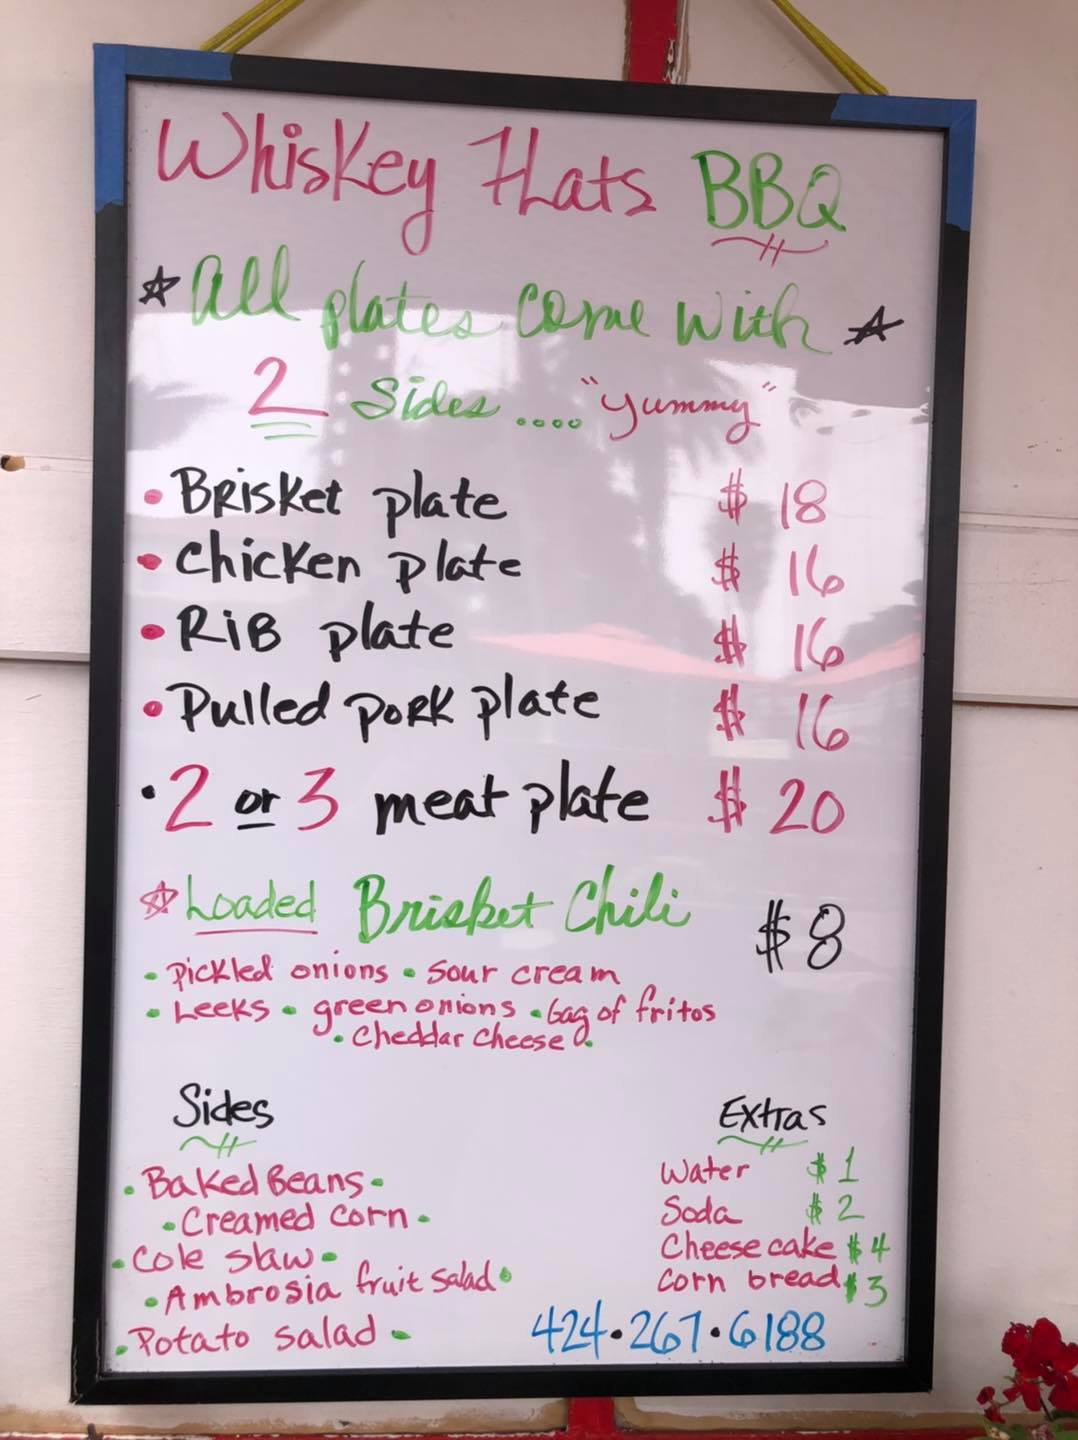 Whiskey Flats BBQ
All plates come with
2 Sides .... "yummy"
• Brisket plate $ 18
• Chicken plate $ 16
• Rib plate $ 16
• Pulled pork plate $ 16
• 2 or 3 meat plate $ 20
Loaded Brisket Chili $8
• Pickled onions • Sour cream
• Leeks • green onions • bag of fritos
• Cheddar cheese •
Sides
• Baked Beans •
• Creamed corn •
• Cole slaw •
• Ambrosia fruit salad •
• Potato salad •
Extras
Water $ 1
Soda $ 2
Cheese cake $ 4
Corn bread $ 3
424 • 267 • 6188